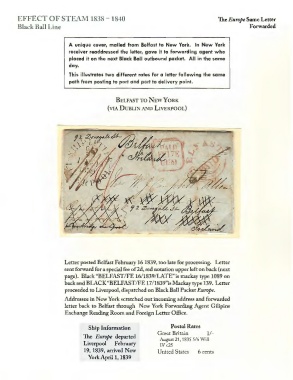 EFFECT OF STEAM 1838 - 1840
Black Ball Line
The Europe Same Letter
Forwarded
A unique cover, mailed from Belfast to New York. In New York
receiver readdressed the letter, gave it to forwarding agent who
placed it on the next Black Ball outbound packet. All in the same
day.
This illustrates two different rates for a letter following the same
path from posting to port and port to delivery point.
BELFAST TO NEW YORK
(VIA DUBLIN AND LIVERPOOL)
Belfast
Ireland
Belfast
Ireland
Letter posted Belfast February 16 1839, too late for processing. Letter
sent forward for a special fee of 2d, red notation upper left on back (next
page). Black "BELFAST/FE 16/1839/LATE" is mackay type 1089 on
back and BLACK "BELFAST/FE 17/1839" is Mackay type 139. Letter
proceeded to Liverpool, dispatched on Black Ball Packet Europe.
Addressee in New York scratched out incoming address and forwarded
letter back to Belfast through New York Forwarding Agent Gilpins
Exchange Reading Room and Foreign Letter Office.
Ship Information
The Europe departed
Liverpool February
19, 1839, arrived New
York April 1, 1839
Postal Rates
Great Britain 1/-
August 21, 1835 5/6 Will
IV c25
United States 6 cents